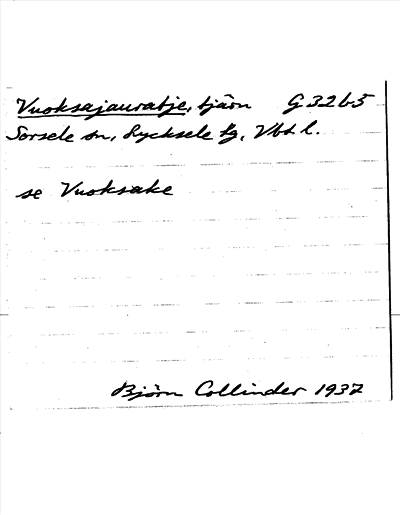 Vuoksajauratje, tjärn G 32 b 5
Sorsele sn, Lycksele lg, Vbt l.
se Vuoksake
Björn Collinder 1937